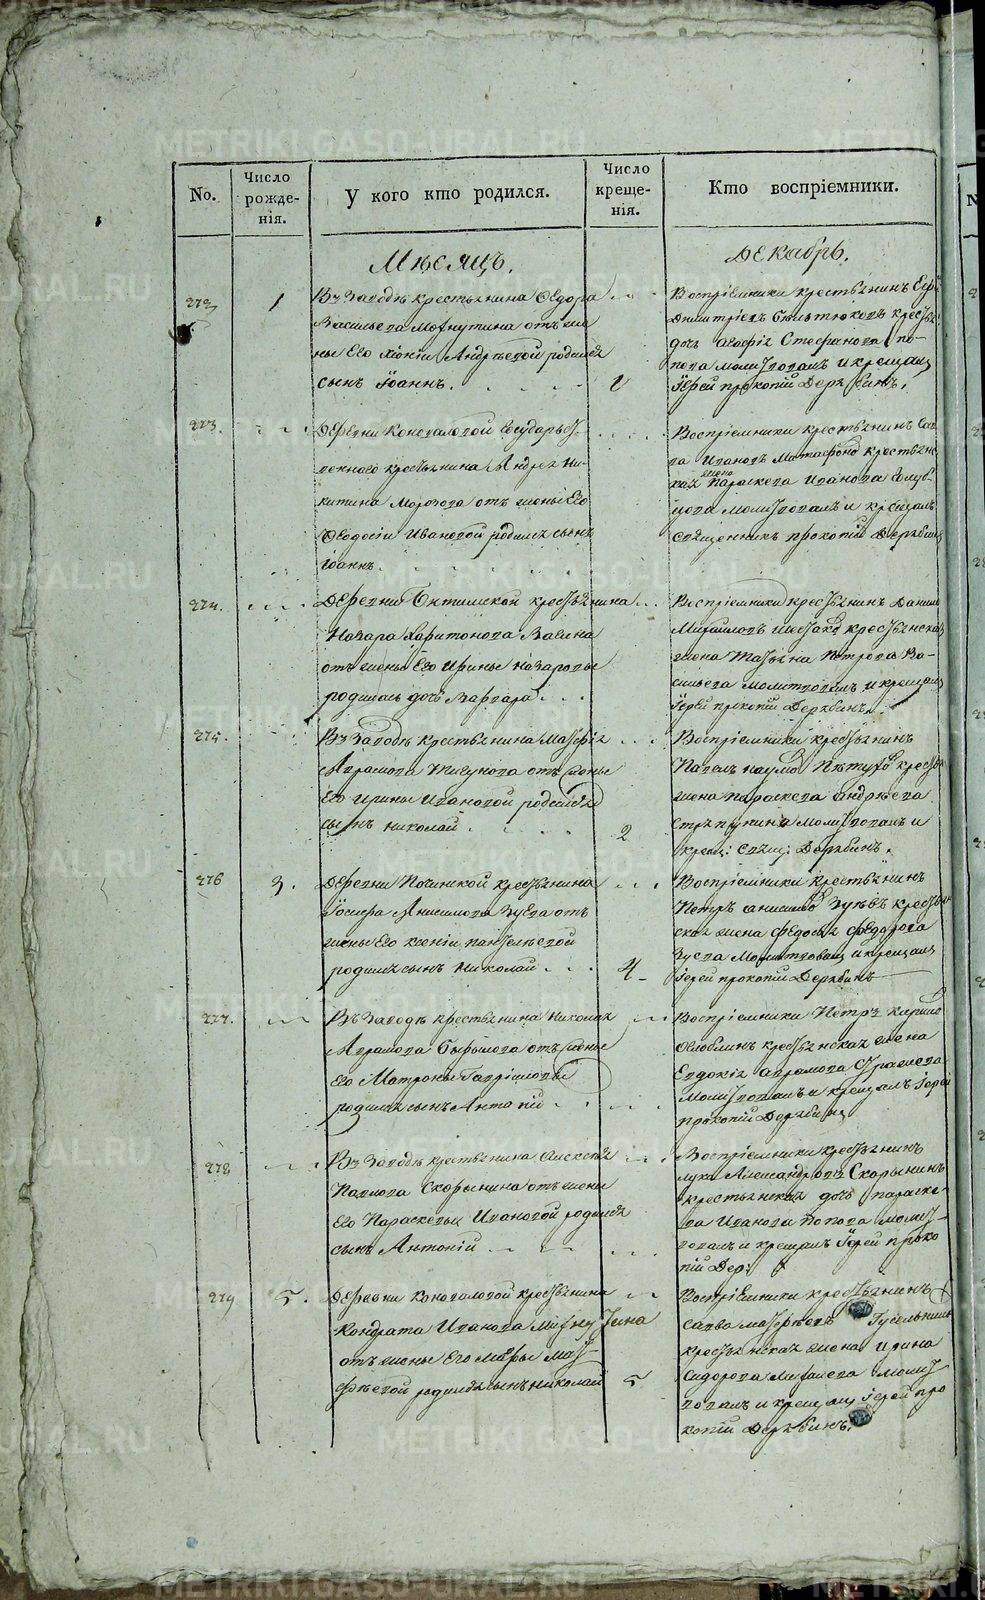 METRIKI.GASO-URAL.RU
No.
Число рожде-нія.
У кого кто родился.
Число креще-нія.
Кто воспріемники.
Мѣсяцъ.
Декабрь.
272
1
Въ Заводѣ крестьянина Ѳедора
Васильева отъ же
ны Его Хіоніи Андрѣевой родился
сынъ Іоаннъ.
2
Воспріемники крестьянинъ
Димитріевъ
дочь Стефанова по-
пова молитвовалъ и крещалъ
Іерей прокопій Дерябинъ.
273.
Деревни Коноваловой Государст-
веннаго крестьянина Андрея Ни-
китина Морозова отъ жены Его
Ѳеодосіи Ивановой родился сынъ
Іоаннъ.
Воспріемники крестьянинъ Сав-
ва Ивановъ крестьянс-
кая жена Параскева Иванова Голуб-
цова молитвовалъ и крещалъ
Священникъ прокопій Дерябинъ
274.
Деревни крестьянина
Назара Харитонова
отъ жены Его Ирины Назаровы
родилась дочь Варвара
Воспріемники крестьянинъ Данило
Михайловъ крестьянская
жена Татьяна Петрова Ва-
сильева молитвовалъ и крещалъ
Іерей прокопій Дерябинъ.
275.
Въ Заводѣ крестьянина Матфія
Аврамова отъ жены
Его Ирины Ивановой родился
сынъ Николай.
2
Воспріемники крестьянинъ
Павелъ наумов Пѣтухов крестьян
жена параскева андрѣева
молитвовалъ и
крещ: свящ: Дерябинъ.
276
3.
Деревни крестьянина
Іосифа Анисимова Зуева отъ
жены Его ксеніи пантелѣевой
родился сынъ Николай
4
Воспріемники крестьянинъ
Петръ анисимов Зуѣвъ крестьян
ская жена федосья федорова
Зуева Молитвовалъ и крещалъ
Іерей прокопій Дерябинъ
277.
Въ Заводѣ крестьянина Николая
Аврамова отъ жены
Его Матроны Гавріиловы
родился сынъ Антоній
Воспріемники Петръ
крестьянская жена
Евдокія аврамова
Молитвовалъ и крещалъ Іерей
прокопій Дерябинъ
278
Въ Заводѣ крестьянина Алексея
Павлова Скорынина отъ жены
Его Параскевы Ивановой родился
сынъ Антоній
Воспріемники крестьянинъ
лука Александровъ Скорынинъ
крестьянская дочь параске-
ва Иванова попова молит-
вовалъ и крещалъ Іерей проко
пій Дер:
279
5.
Деревни Коноваловой крестьянина
Кондрата Иванова
отъ жены Его Марфы Мат-
фѣевой родился сынъ николай
5
Воспріемники крестьянинъ
савва матфѣевъ Гусельник
крестьянская жена ирина
сидорова молит
вовалъ и крещалъ Іерей про
копій Дерябинъ.